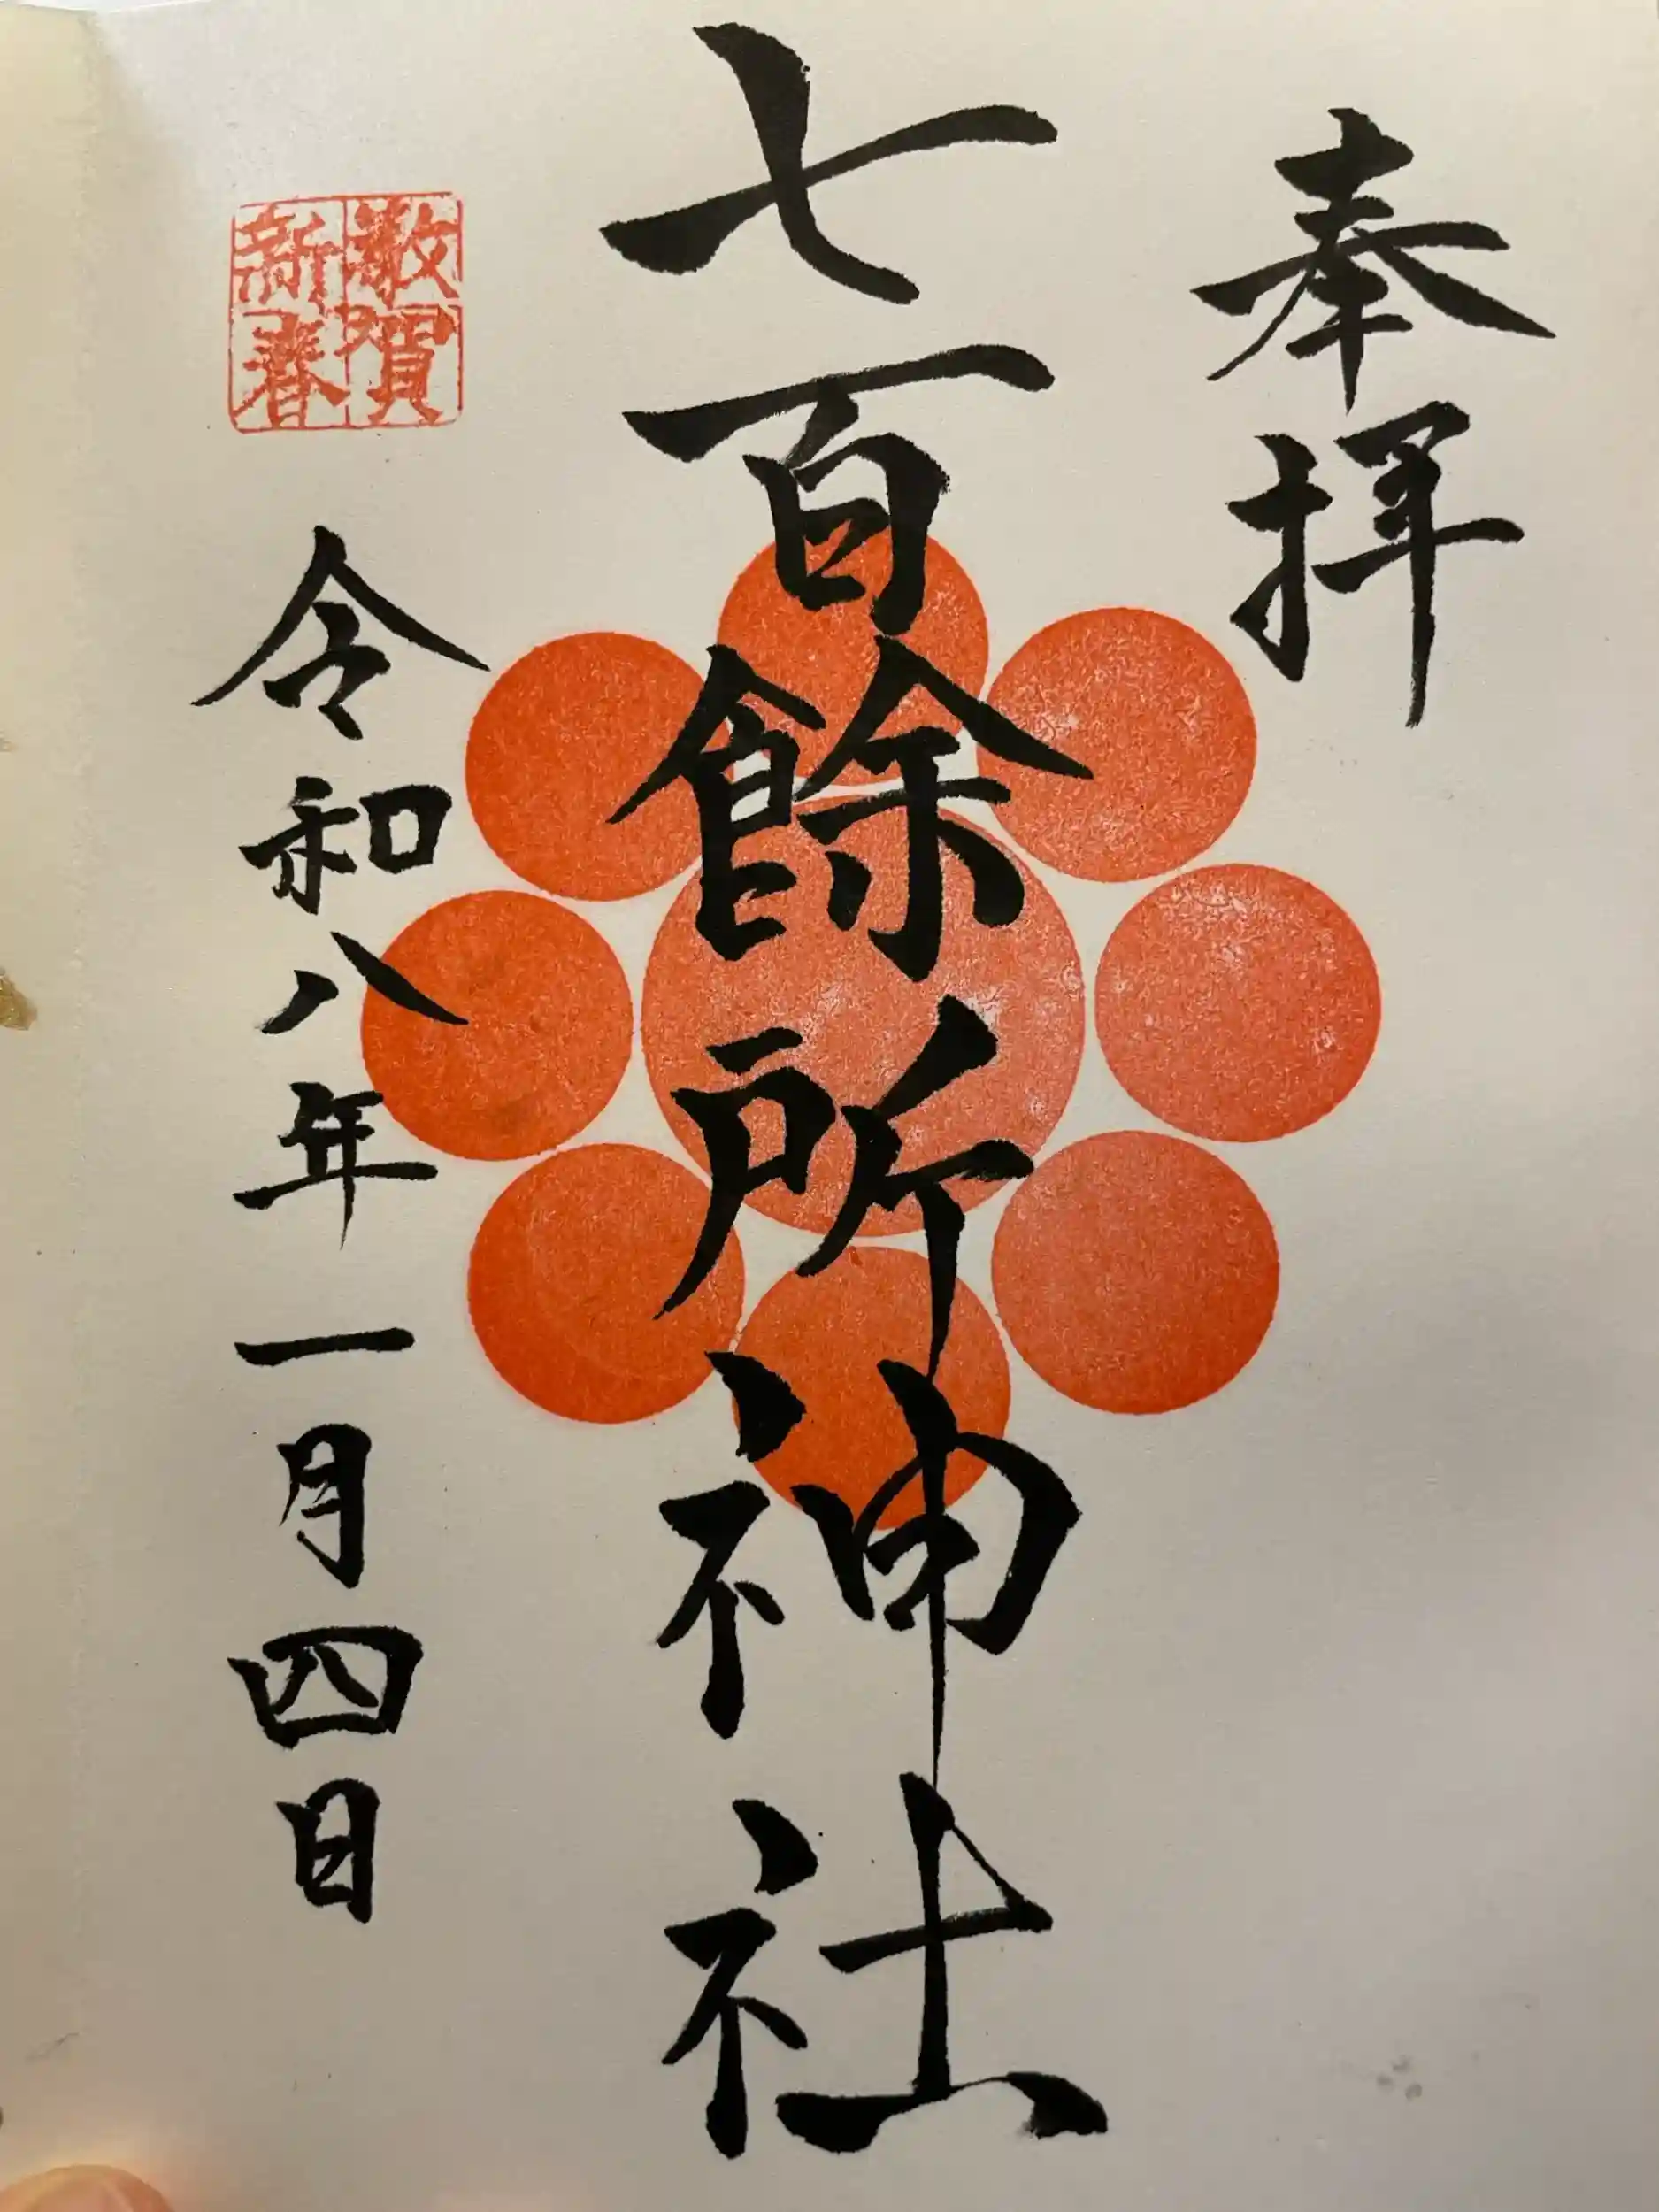 奉拝
七百餘所神社
敬賀
新春
令和八年一月四日